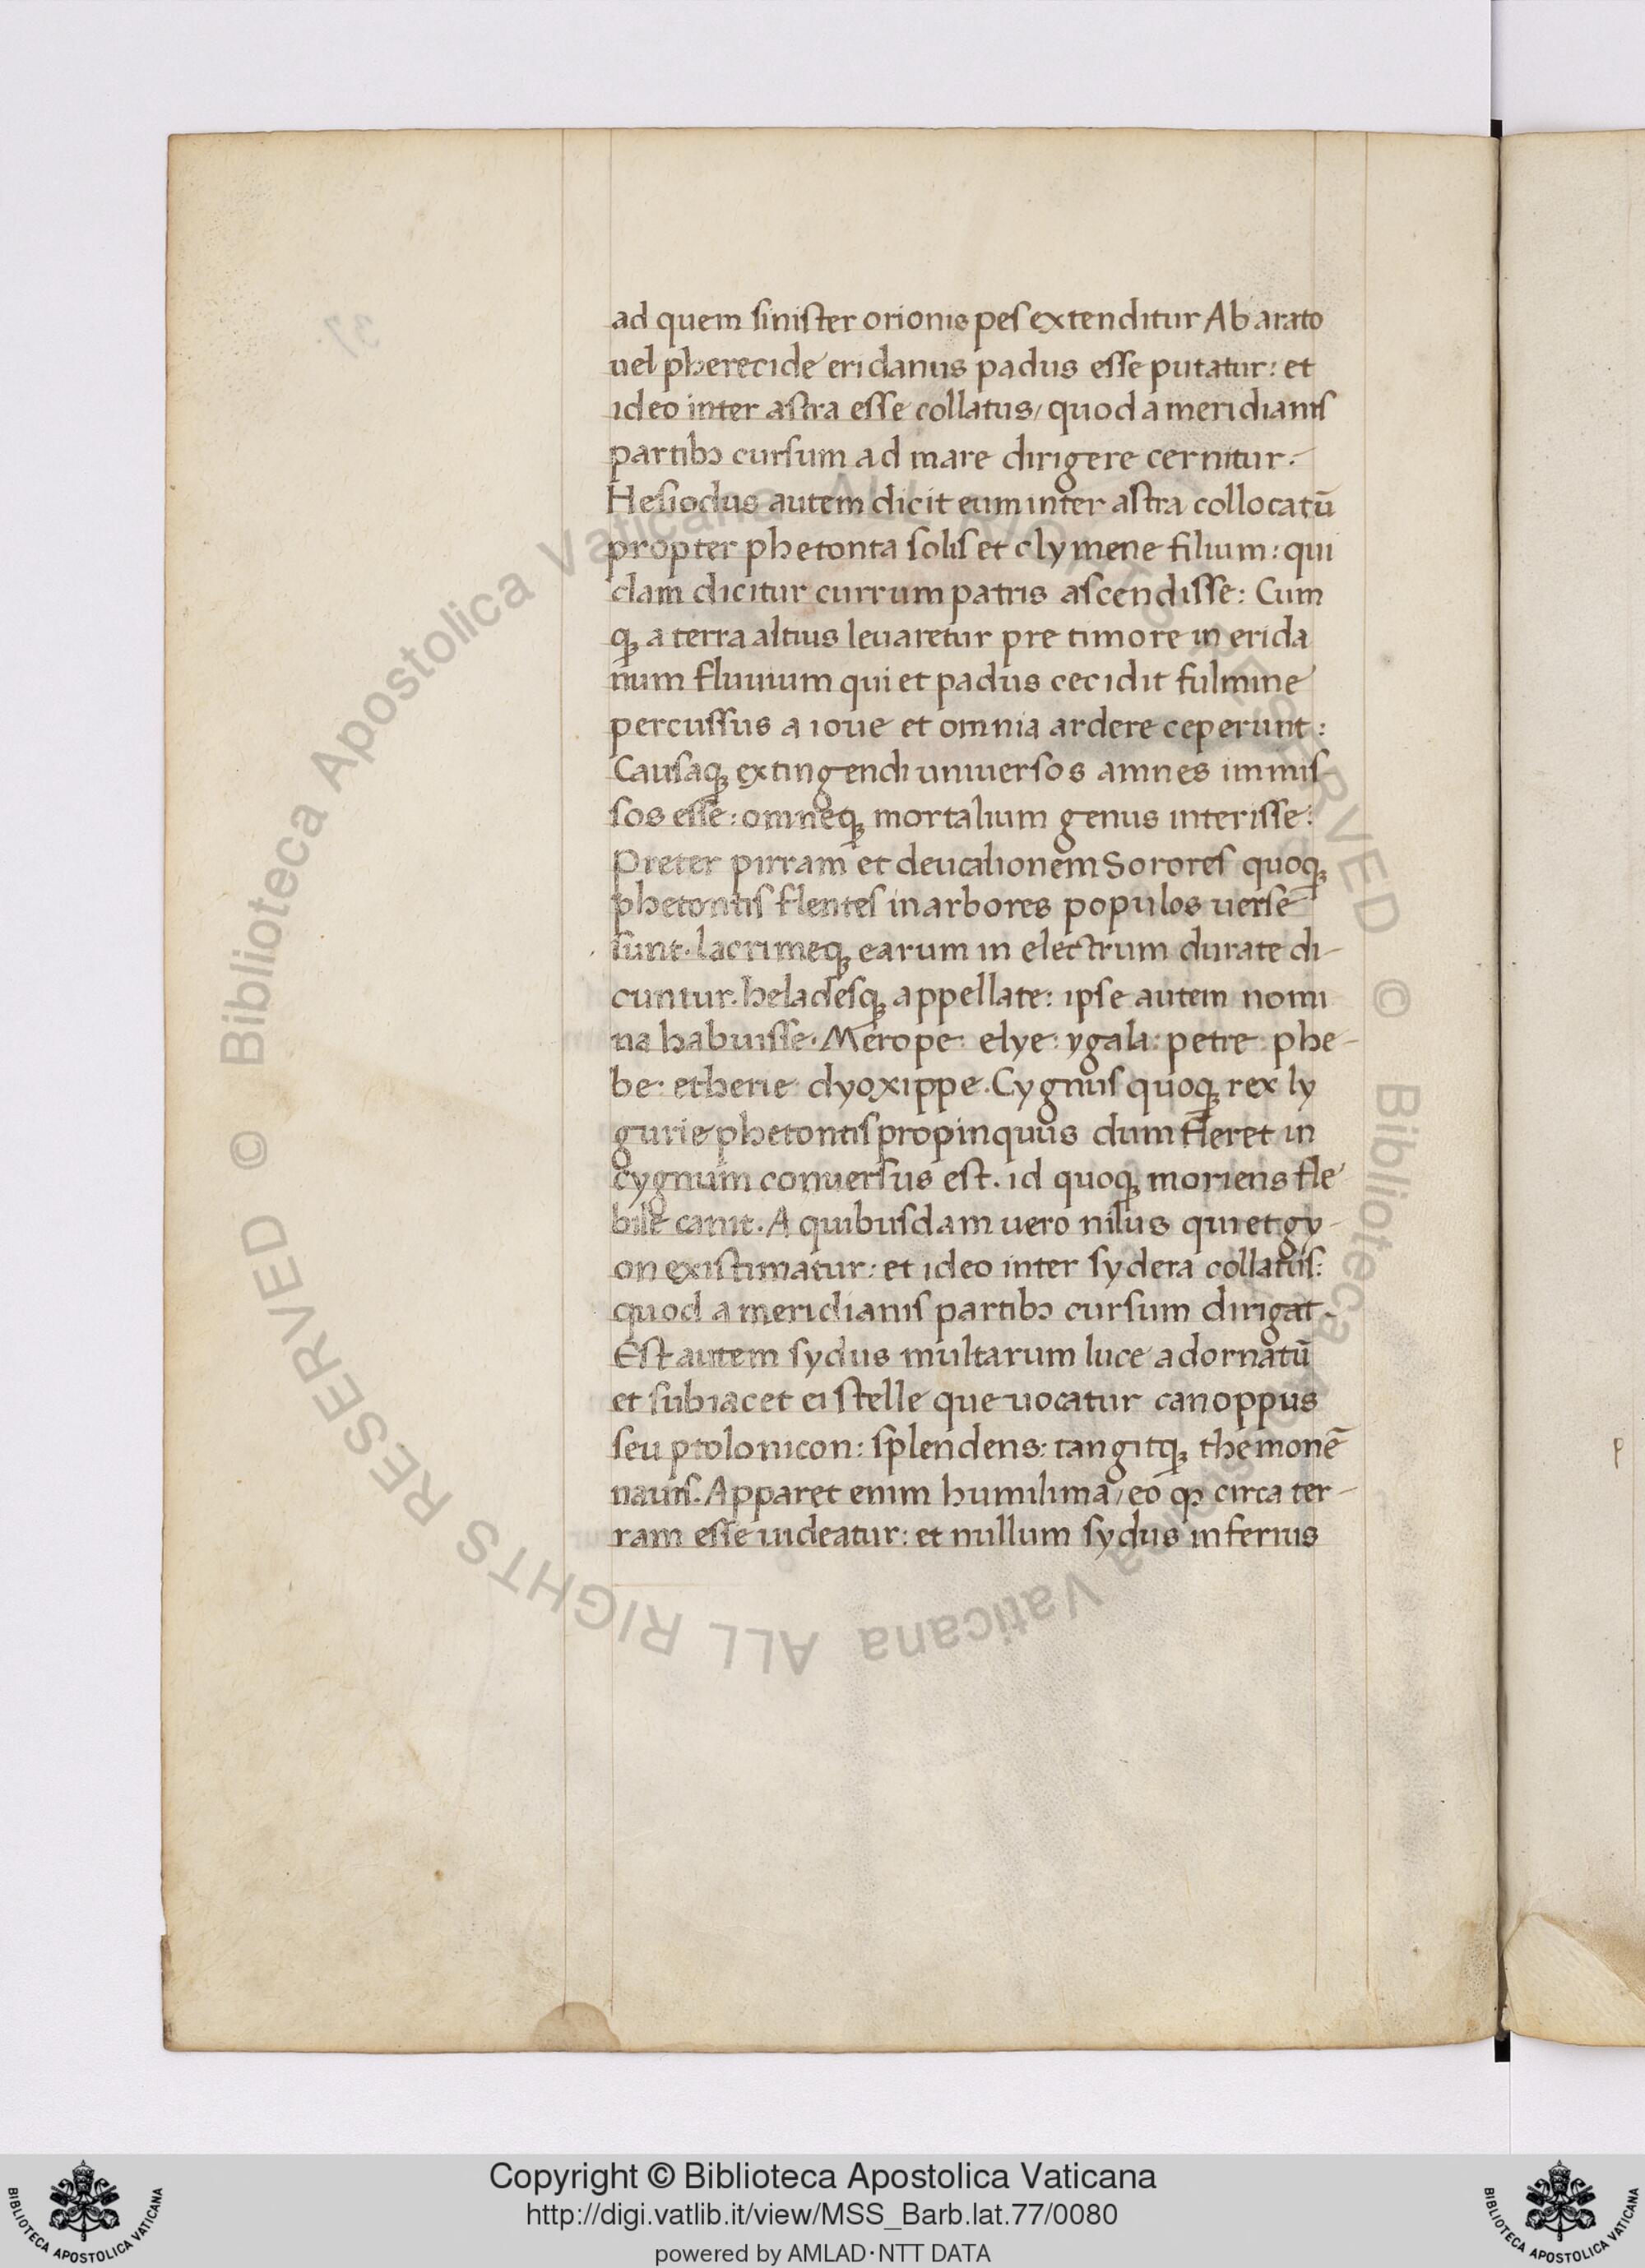 ad quem sinister orionis pes extenditur Ab arato
uel pherecide eridanus padus esse putatur: et
ideo inter astra esse collatus, quod a meridianis
partibꝫ cursum ad mare dirigere cernitur.
Hesiodus autem dicit eum inter astra collocatū
propter phetonta solis et clymene filium: qui
clam dicitur currum patris ascendisse: Cum
qꝫ a terra altius leuaretur pre timore in erida
num fluuium qui et padus cecidit fulmine
percussus a ioue et omnia ardere ceperunt:
Causaqꝫ extingendi uniuersos amnes immis
sos esse: omneqꝫ mortalium genus interisse:
Preter pirram et deucalionem Sorores quoqꝫ
phetontis flentes in arbores populos uerse
sunt. lacrimeqꝫ earum in electrum durate di-
cuntur. heladesqꝫ appellate: ipse autem nomi
na habuisse. Merope: elye: ygala: petre: phe-
be: etherie: dyoxippe. Cygnus quoqꝫ rex ly
gurie phetontis propinquus dum fleret in
cygnum conuersus est. id quoqꝫ moriens fle
bile canit. A quibusdam uero nilus qui et gy-
on existimatur: et ideo inter sydera collatus:
quod a meridianis partibꝫ cursum dirigat.
Est autem sydus multarum luce adornatū
et subiacet ei stelle que uocatur canoppus
seu ptolonicon: splendens: tangitqꝫ themonē
nauis. Apparet enim humilima, eo qꝫ circa ter-
ram esse uideatur: et nullum sydus inferius
© Biblioteca Apostolica Vaticana ALL RIGHTS RESERVED © Biblioteca Apostolica Vaticana ALL RIGHTS RESERVED
p
Copyright © Biblioteca Apostolica Vaticana
http://digi.vatlib.it/view/MSS_Barb.lat.77/0080
powered by AMLAD·NTT DATA
BIBLIOTECA APOSTOLICA VATICANA
BIBLIOTECA APOSTOLICA VATICANA